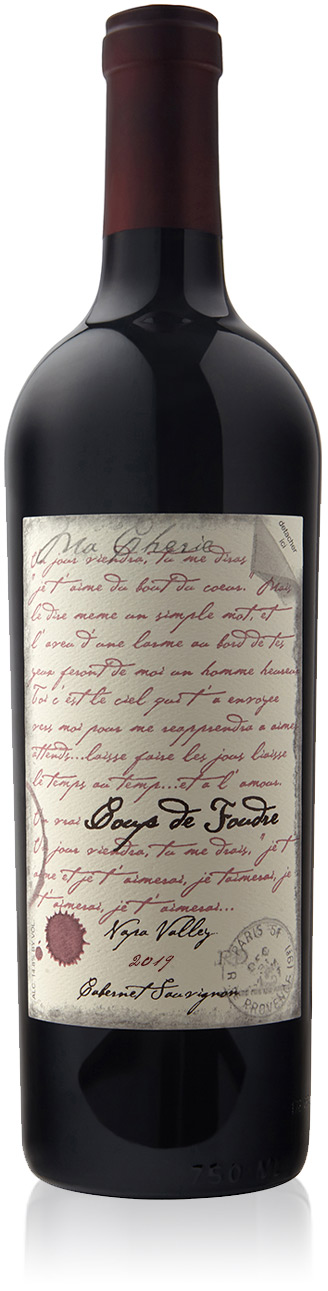 Ma Cherie
detacher
ici
Un jour viendra, tu me diras
"je t'aime du bout du coeur." Mais
le dire meme un simple mot, et
l'aveu d'une larme au bord de tes
yeux feront de moi un homme heureux
Toi c'est le ciel qui t'a envoyee
vers moi pour me reapprendre a aime
attends...laisse faire les jours liaisse
le temps au temp...et a l'amour.
Un vrai Coups de Foudre
Un jour viendra, tu me drais, "je t'
aime et je t'aimerai, je t'aimerai, je
t'aimerai, je t'aimerai...
Napa Valley
2019
Cabernet Sauvignon
PARIS 54
PROVENCE
750 ML